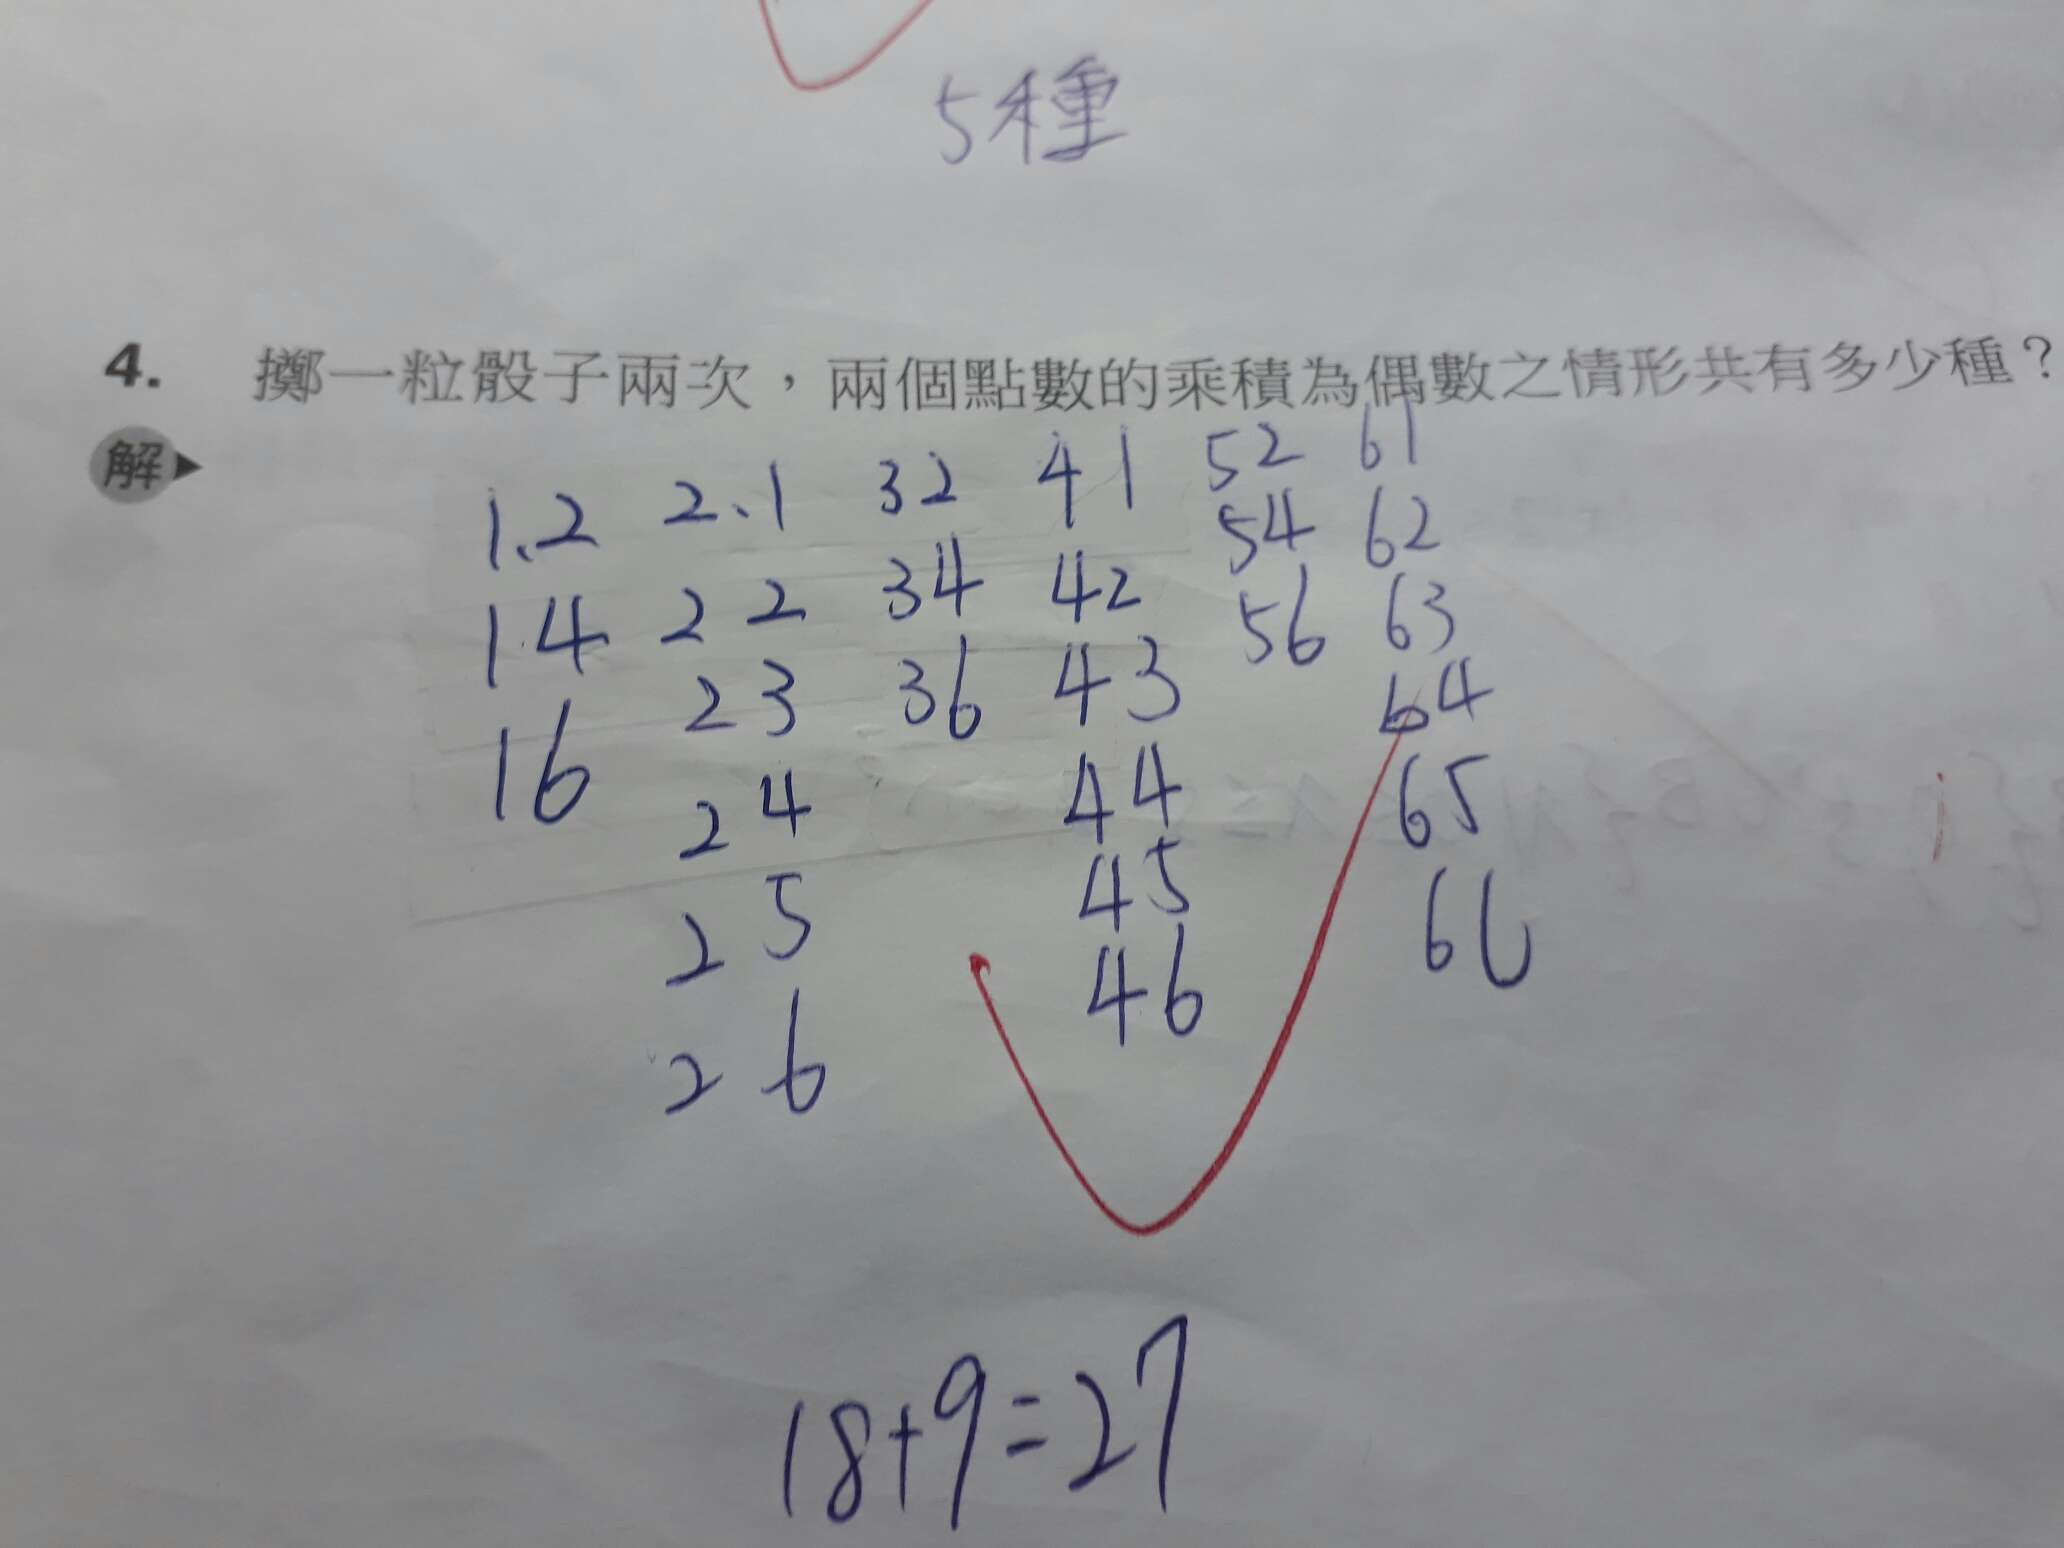 5種
4. 擲一粒骰子兩次，兩個點數的乘積為偶數之情形共有多少種？
解
1.2 2、1 32 41 52 61
1.4 22 34 42 54 62
16 23 36 43 56 63
24 44 64
25 45 65
26 46 66
18+9=27